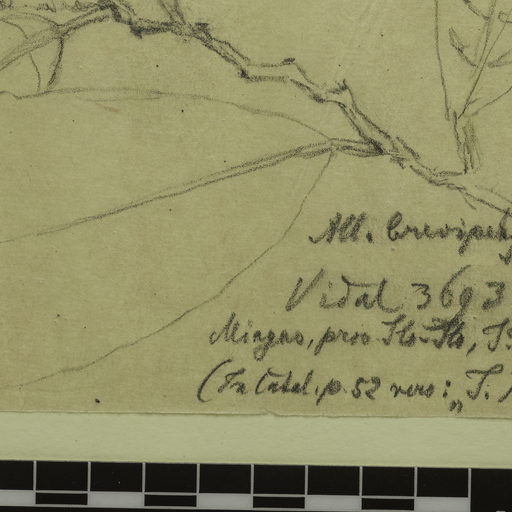 All. brevipet
Vidal 3693
Miagao, prov. Ilo-Ilo, I
(In Catal. p. 52 vero: „S.